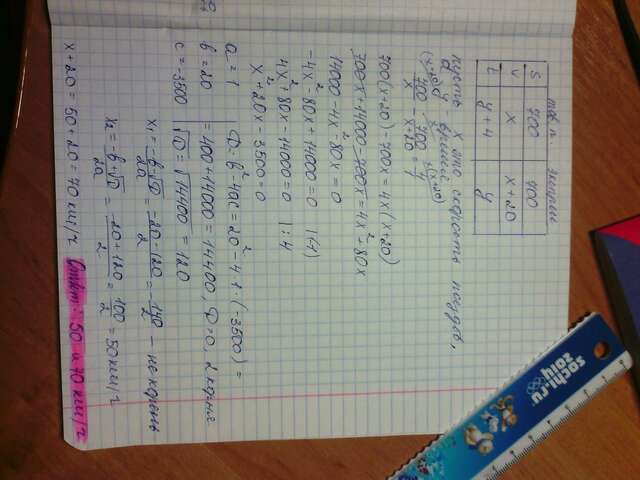 тов. п. экспресс
S 700 700
V x x+20
t y+4 y
пусть x это скорость поездов,
а y - время
700/x - 700/(x+20) = 4
700(x+20) - 700x = 4x(x+20)
700x + 14000 - 700x = 4x² + 80x
14000 - 4x² - 80x = 0
-4x² - 80x + 14000 = 0 |(-1)
4x² + 80x - 14000 = 0 | :4
x² + 20x - 3500 = 0
a = 1 D = b² - 4ac = 20² - 4·1·(-3500) =
b = 20 = 400 + 14000 = 14400, D>0, 2 корня
c = -3500 √D = √14400 = 120
x₁ = (-b-√D)/2a = (-20-120)/2 = -140/2 - не корень
x₂ = (-b+√D)/2a = (-20+120)/2 = 100/2 = 50 км/ч
x + 20 = 50 + 20 = 70 км/ч Ответ: 50 и 70 км/ч
sochi.ru
2014